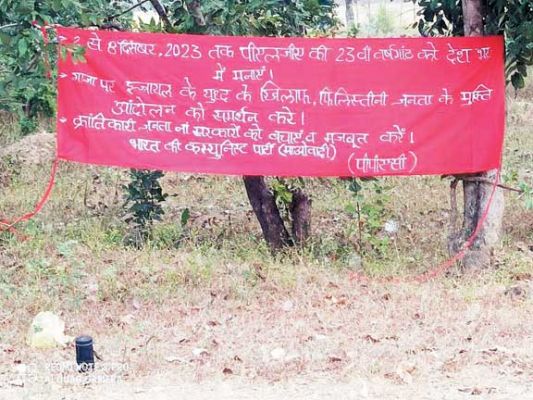 2 से 8 दिसम्बर, 2023 तक पीएलजीए की 23वी वर्षगांठ को देश भर
में मनाएँ।
गाजा पर इजरायल के युद्ध के खिलाफ, फिलिस्तीनी जनता के मुक्ति
आंदोलन को समर्थन करें।
क्रांतिकारी जनता ना सरकारों को बचाएं व मजबूत करें।
भारत की कम्युनिस्ट पार्टी (माओवादी) (पीपीएससी)
REDMI NOTE